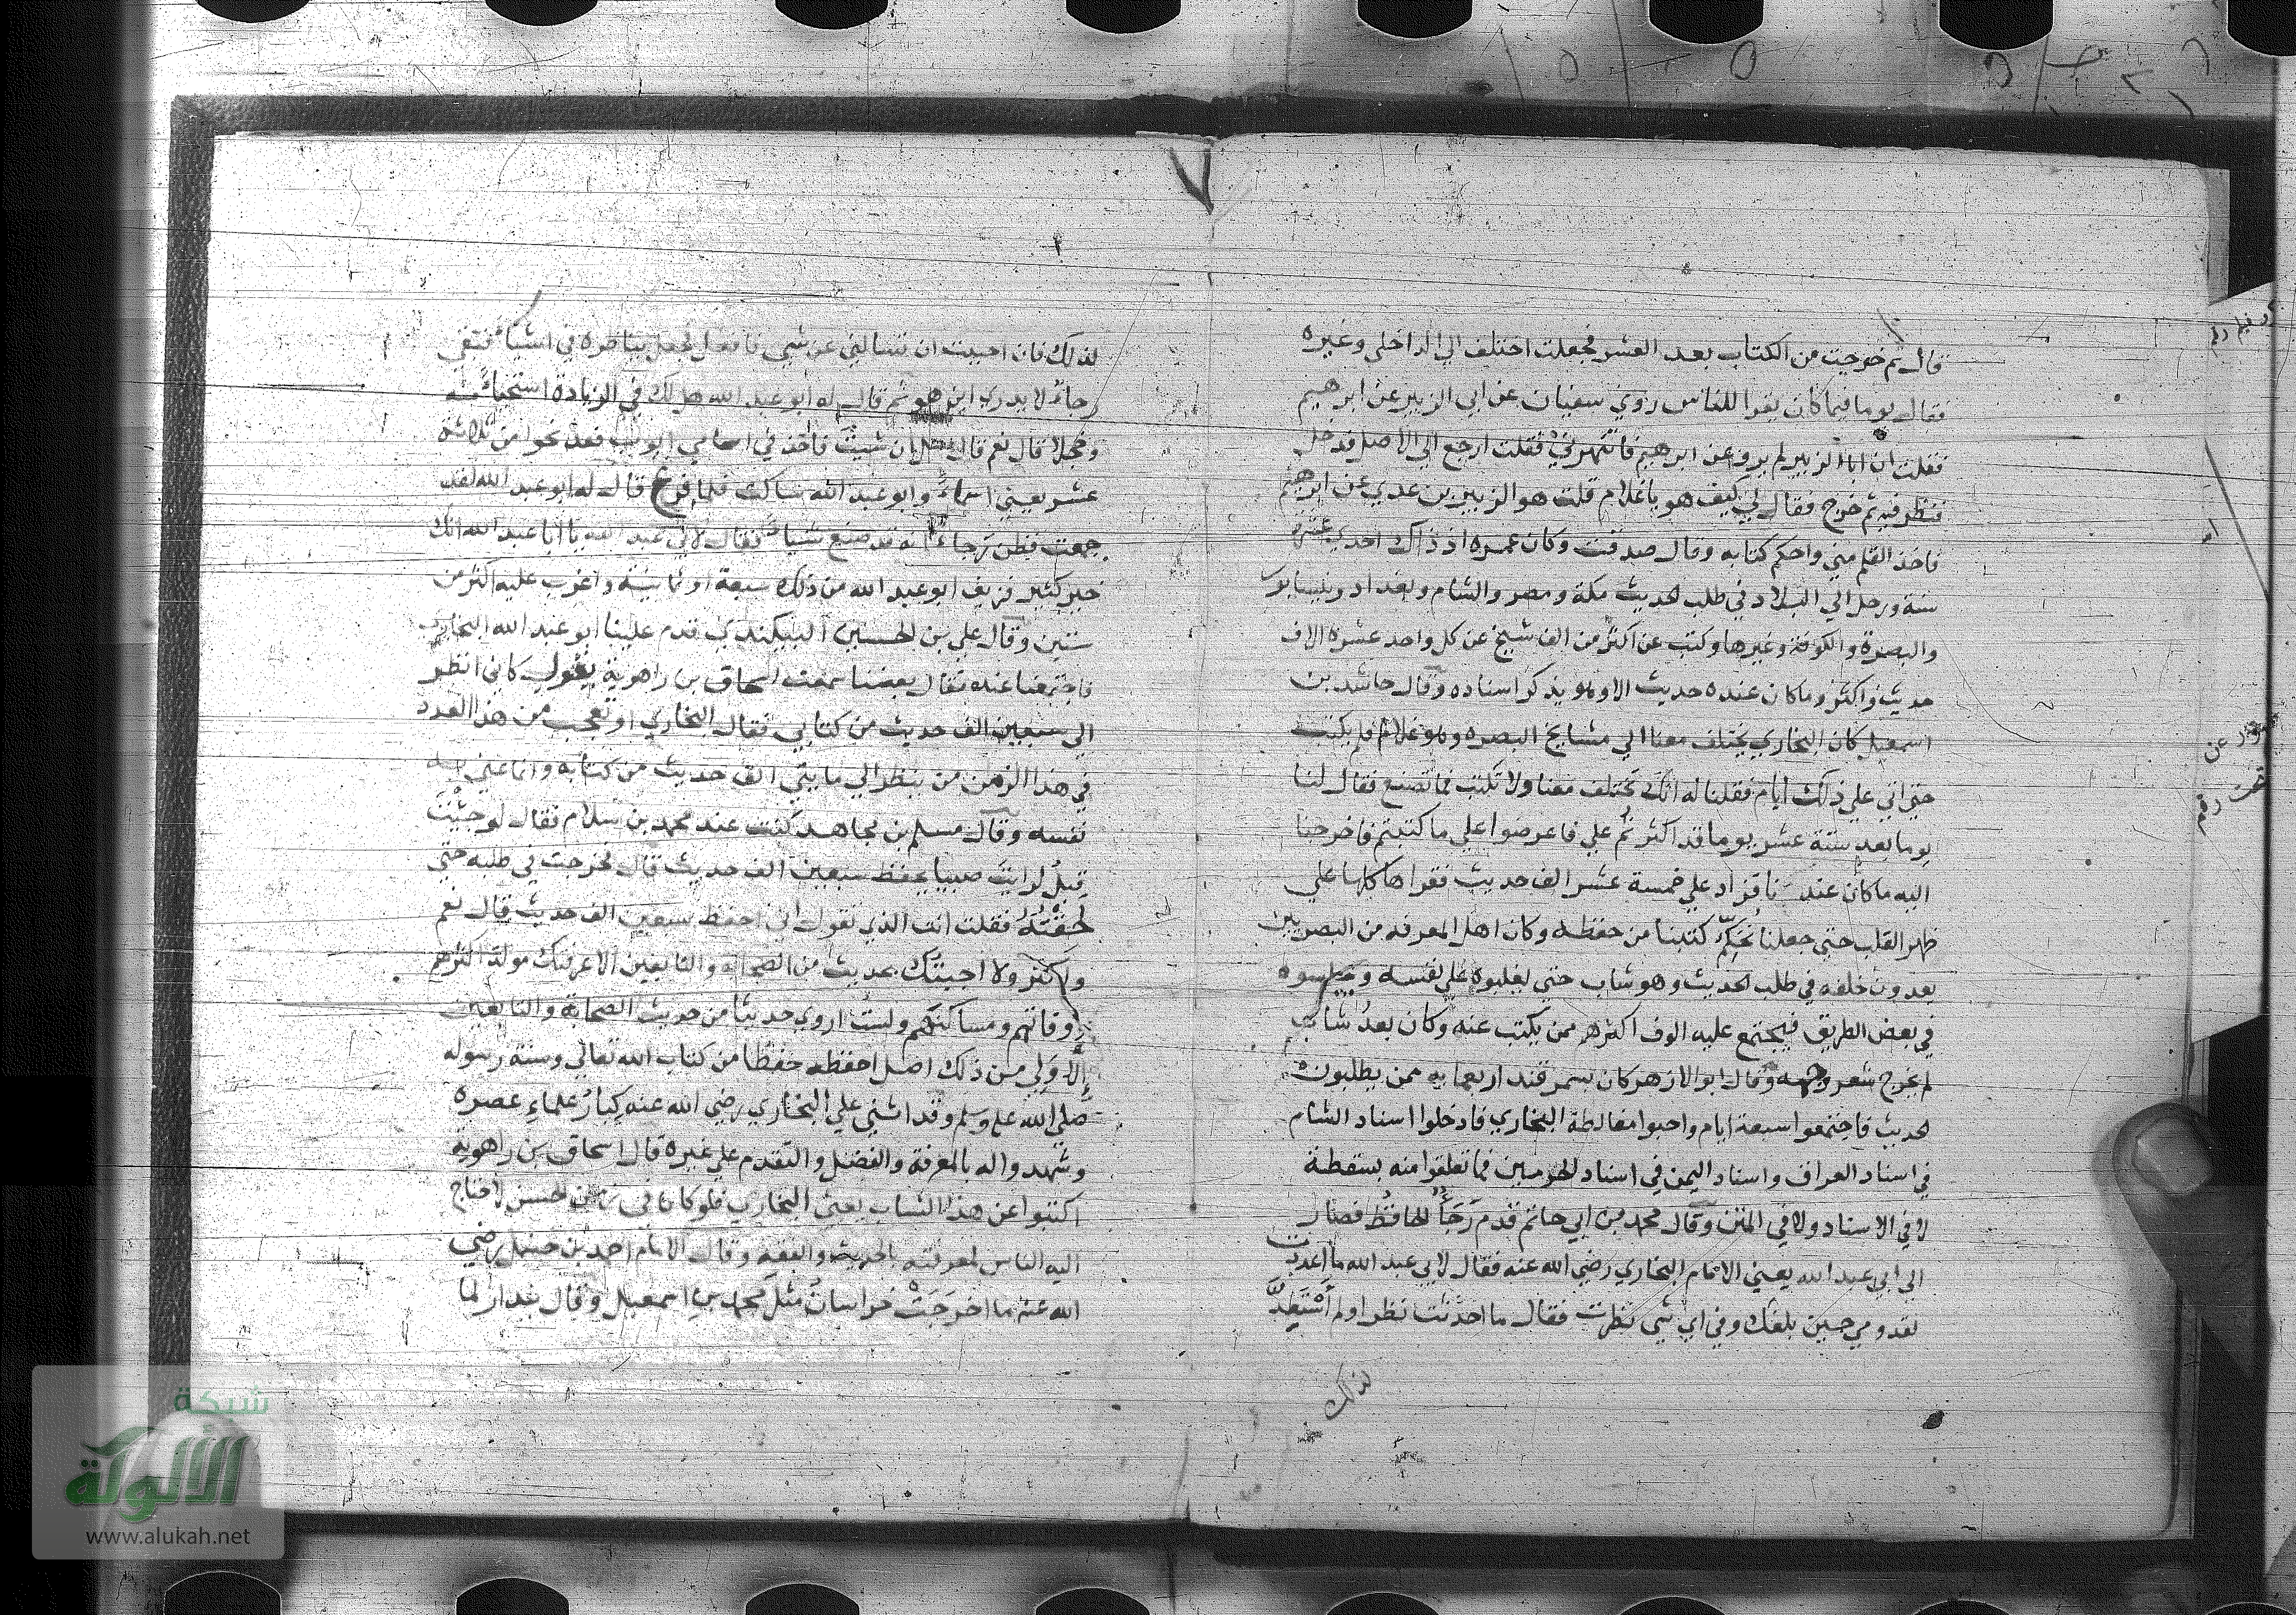 قال ثم خرجت من الكتاب بعد العشر فجعلت اختلف الي الداخلي وغيره
فقال يوما فيما كان يقرا للناس روي سفيان عن ابي الزبير عن ابرهيم
فقلت ان ابا الزبير لم يرو عن ابرهيم فانتهرني فقلت ارجع الي الاصل فدخل
فنظر فيه ثم خرج فقال لي كيف هو يا غلام قلت هو الزبير بن عدي عن ابرهيم
فاخذ القلم مني واحكم كتابه وقال صدقت وكان عمره اذ ذاك احدي عشره
سنة ورحل الي البلاد في طلب الحديث مكة ومصر والشام وبغداد ونيسابور
والبصرة والكوفة وغيرها وكتب عن اكثر من الف شيخ عن كل واحد عشرة الاف
حديث واكثر وما كان عنده حديث الا وهو يذكر اسناده وقال حاشد بن
اسمعيل كان البخاري يختلف معنا الي مشايخ البصره وهو غلام فلم يكتب
حتي اتي علي ذلك ايام فقلنا له انك تختلف معنا ولا تكتب فما تصنع فقال لنا
يوما بعد ستة عشر يوما قد اكثرتم علي فاعرضوا علي ما كتبتم فاخرجنا
اليه ما كان عندنا فزاد علي خمسة عشر الف حديث فقراها كلها علي
ظهر القلب حتي جعلنا نحكم كتبنا من حفظه وكان اهل المعرفه من البصريين
يعدون خلفه في طلب الحديث وهو شاب حتي يغلبوه علي نفسه ويجلسوه
في بعض الطريق فيجتمع عليه الوف اكثرهم ممن يكتب عنه وكان بعد شابا
لم يخرج شعر وجهه وقال ابو الازهر كان بسمرقند اربعمايه ممن يطلبون
الحديث فاجتمعوا سبعة ايام واحبوا مغالطة البخاري فادخلوا اسناد الشام
في اسناد العراق واسناد اليمن في اسناد الحرمين فما تعلقوا منه بسقطة
لا في الاسناد ولا في المتن وقال محمد بن ابي حاتم قدم رجاء الحافظ فصار
الي ابي عبد الله يعني الامام البخاري رضي الله عنه فقال لابي عبد الله ما اعددت
لقدومي حين بلغك وفي اي شي نظرت فقال ما احدثت نظرا ولم استعد
لذلك
لذلك فان احببت ان تسالني عن شي فافعل فجعل يناظره في اشياء فبقي
رجاء لا يدري اين هو ثم قال له ابو عبد الله هل لك في الزيادة استحياء منه
وخجلا قال نعم قال سل ان شيت فاخذ في اسامي ايوب فعد نحوا من ثلاثة
عشر يعني اسماء وابو عبد الله ساكت فلما فرغ قال له ابو عبد الله لقد
جمعت فظن رجاء انه قد صنع شيا فقال لابي عبد الله يا ابا عبد الله انك
خير كثير فزيف ابو عبد الله من ذلك سبعة او ثمانية واغرب عليه اكثر من
ستين وقال علي بن الحسين البيكندي قدم علينا ابو عبد الله البخاري
فاجتمعنا عنده فقال بعضنا سمعت اسحاق بن راهوية يقول كاني انظر
الي سبعين الف حديث من كتابي فقال البخاري او تعجب من هذا العدد
في هذا الزمن من ينظر الي مايتي الف حديث من كتابه وانما عني به
نفسه وقال مسلم بن مجاهد كنت عند محمد بن سلام فقال لو جيت
قبل لرايت صبيا يحفظ سبعين الف حديث قال فخرجت في طلبه حتي
لحقته فقلت انت الذي تقول اني احفظ سبعين الف حديث قال نعم
واكثر ولا اجيتك بحديث من الصحابه والتابعين الا عرفتك مولد اكثرهم
ووفاتهم ومساكنهم ولست اروي حديثا من حديث الصحابة والتابعين
الا ولي من ذلك اصل احفظه حفظا من كتاب الله تعالي وسنة رسوله
صلي الله عليه وسلم وقد اثني علي البخاري رضي الله عنه كبار علماء عصره
وشهدوا له بالمعرفة والفضل والتقدم علي غيره قال اسحاق بن راهوية
اكتبوا عن هذا الشاب يعني البخاري فلو كان في زمن الحسن لاحتاج
اليه الناس لمعرفته بالحديث والفقه وقال الامام احمد بن حنبل رضي
الله عنه ما اخرجت خراسان مثل محمد بن اسمعيل وقال بندار لما
شبكة
الألوكة
www.alukah.net